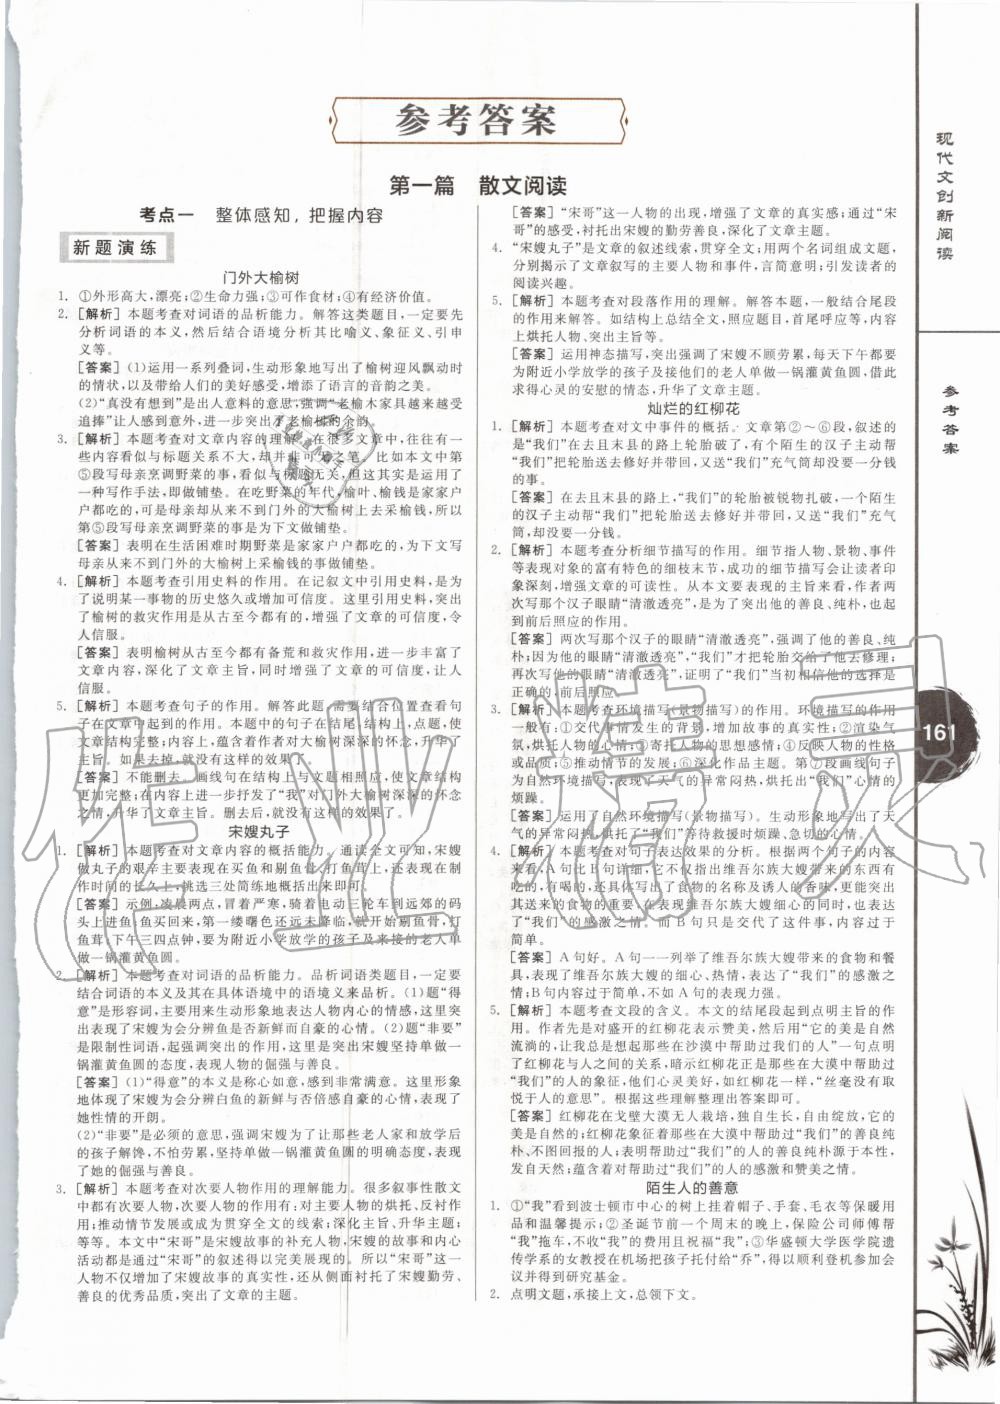 参考答案
第一篇 散文阅读
考点一 整体感知，把握内容
新题演练
门外大榆树
1. ①外形高大，漂亮；②生命力强；③可作食材；④有经济价值。
2. [解析] 本题考查对词语的品析能力。解答这类题目，一定要先
分析词语的本义，然后结合语境分析其比喻义、象征义、引申
义等。
[答案] (1)运用一系列叠词，生动形象地写出了榆树迎风飘动时
的情状，以及带给人们的美好感受，增添了语言的音韵之美。
(2)“真没有想到”是出人意料的意思，强调“老榆木家具越来越受
追捧”让人感到意外，进一步突出了老榆树的余韵。
3. [解析] 本题考查对文章内容的理解。在很多文章中，往往有一
些内容看似与标题关系不大，却并非可无之笔。比如本文中第
⑤段写母亲烹调野菜的事，看似与标题无关，但其实是运用了
一种写作手法，即做铺垫。在吃野菜的年代，榆叶、榆钱是家家户
户都吃的，可是母亲却从来不到门外的大榆树上去采榆钱，所以
第⑤段写母亲烹调野菜的事是为下文做铺垫。
[答案] 表明在生活困难时期野菜是家家户户都吃的，为下文写
母亲从来不到门外的大榆树上采榆钱的事做铺垫。
4. [解析] 本题考查引用史料的作用。在记叙文中引用史料，是为
了说明某一事物的历史悠久或增加可信度。这里引用史料，突出
了榆树的救灾作用是从古至今都有的，增加了文章的可信度，令
人信服。
[答案] 表明榆树从古至今都有备荒和救灾作用，进一步丰富了
文章内容，深化了文章主旨，同时增强了文章的可信度，让人
信服。
5. [解析] 本题考查句子的作用。解答此题，需要结合位置查看句
子在文章中起到的作用。本题中的句子在结尾，结构上，点题，使
文章结构完整；内容上，蕴含着对大榆树深深的怀念，升华了文章
主旨。如果去掉，就没有这样的效果了。
[答案] 不能删去。画线句在结构上与标题相呼应，使文章结构
更加完整；在内容上进一步抒发了“我”对门外大榆树深深的怀念
之情，升华了文章主旨。删去后，就没有这样的效果了。
宋嫂丸子
1. [解析] 本题考查对文章内容的概括能力。通读全文可知，宋嫂
做丸子的艰辛主要表现在买鱼和剔鱼骨、打鱼茸上，还表现在制
作时间的长久上，挑选三处简练地概括出来即可。
[答案] 示例：凌晨两三点，冒着严寒，骑着电动三轮车到远郊的码
头上进鱼；鱼买回来，第一缕曙色还远未降临，就开始剔鱼骨，打
鱼茸；下午三四点钟，要为附近小学放学的孩子及来接的老人单
做一锅灌黄鱼圆。
2. [解析] 本题考查对词语的品析能力。品析词语类题目，一定要
结合词语的本义及其在具体语境中的语境义来品析。(1)题“得
意”是形容词，主要用来生动形象地表达人物内心的情感，这里突
出表现了宋嫂为会分辨鱼是否新鲜而自豪的心情。(2)题“非要”
是限制性词语，起强调突出的作用。这里是突出宋嫂坚持单做一
锅灌黄鱼圆的态度，表现人物的倔强与善良。
[答案] (1)“得意”的本义是称心如意，感到非常满意。这里形象
地体现了宋嫂为会分辨白鱼的新鲜与否倍感自豪的心情，表现了
她性情的开朗。
(2)“非要”是必须的意思，强调宋嫂为了让那些老人家和放学后
的孩子解馋，不怕劳累，坚持单做一锅灌黄鱼圆的明确态度，表现
了她的倔强与善良。
3. [解析] 本题考查对次要人物作用的理解能力。很多叙事性散文
中都有次要人物，次要人物的作用有：对主要人物的烘托、反衬作
用；推动情节发展或成为贯穿全文的线索；深化主旨、升华主题，
等等。本文中“宋哥”是宋嫂故事的补充人物，宋嫂的遭遇、宋嫂
的生活情况都是以宋哥的讲述得以完美展现的。所以“宋哥”这一
人物不仅增加了宋嫂故事的真实性，还从侧面衬托了宋嫂勤劳、
善良的优秀品质，突出了文章的主题。
[答案] “宋哥”这一人物的出现，增强了文章的真实感；通过“宋
哥”的感受，衬托出宋嫂的勤劳善良，深化了文章主题。
4. “宋嫂丸子”是文章的叙述线索，贯穿全文；用两个名词组成文题，
分别揭示了文章叙写的主要人物和事件，言简意明；引发读者的
阅读兴趣。
5. [解析] 本题考查对段落作用的理解。解答本题，一般结合尾段
的作用来解答。如结构上总结全文，照应题目，首尾呼应等，内容
上烘托人物，突出主旨等。
[答案] 运用神态描写，突出表现了宋嫂不顾劳累，每天下午都要
为附近小学放学的孩子及接他们的老人做一锅灌黄鱼圆，借此
求得心灵的安慰的情态，升华了文章主题。
灿烂的红柳花
1. [解析] 本题考查对文中事件的概括。文章第②～⑥段，叙述的
是“我们”在且末县的路上轮胎破了，有个陌生的汉子主动帮
“我们”把轮胎送去修好并带回，又送“我们”充气筒却没要一分钱
的事。
[答案] 在去且末县的路上，“我们”的轮胎被锐物扎破，一个陌生
的汉子主动帮“我们”把轮胎送去修好并带回，又送“我们”充气
筒，却没要一分钱。
2. [解析] 本题考查分析细节描写的作用。细节指人物、景物、事件
等表现对象的富有特色的细枝末节，成功的细节描写会让读者印
象深刻，增强文章的可读性。从本文要表现的主旨来看，作者两
次写那个汉子眼睛“清澈透亮”，是为了突出他的善良、纯朴，也起
到前后照应的作用。
[答案] 两次写那个汉子的眼睛“清澈透亮”，强调了他的善良、纯
朴；因为他的眼睛“清澈透亮”，“我们”才把轮胎交给他去修理；
再次写他的眼睛“清澈透亮”，证明了“我们”当初相信他的选择是
正确的，前后照应。
3. [解析] 本题考查环境描写(景物描写)的作用。环境描写的作用
一般有：①交代故事情发生的背景，增加故事的真实性；②渲染气
氛，烘托人物的心情；③寄托人物的思想感情；④反映人物的性格
或品质；⑤推动情节的发展；⑥深化作品主题。第⑦段画线句子
为自然环境描写，表现了天气的异常闷热，烘托出“我们”心情的
烦躁。
[答案] 运用了自然环境描写(景物描写)。生动形象地写出了天
气的异常闷热，烘托了“我们”等待救援时烦躁、急切的心情。
4. [解析] 本题考查对句子表达效果的分析。根据两个句子的内容
来看，A句比B句详细，它不仅写出了维吾尔族大嫂带来的东西有
吃的，有喝的，还具体写出了食物的名称及诱人的香味，更能突出
其送来的食物的重要，表现出维吾尔族大嫂细心的同时，也表达
了“我们”的感激之情。而B句只是交代了这件事，内容过于
简单。
[答案] A句好。A句一一列举了维吾尔族大嫂带来的食物和餐
具，表现了维吾尔族大嫂的细心、热情，表达了“我们”的感激之
情；B句内容过于简单，不如A句的表现力强。
5. [解析] 本题考查文段的含义。本文的结尾段起到点明主旨的作
用。作者先是对盛开的红柳花表示赞美，然后用“它的美是自然
流淌的，让我总想起那些在沙漠中帮助过我们的人”一句点明
了红柳花与人之间的关系，暗示红柳花正是那些在大漠中帮助过
“我们”的人的象征，他们心灵美好，如红柳花一样，“丝毫没有取
悦于人的意思”。根据这些理解整理出答案即可。
[答案] 红柳花在戈壁大漠无人栽培，独自生长，自由绽放，它的
美是自然的；红柳花象征着那些在大漠中帮助过“我们”的善良纯
朴、不图回报的人；表明帮助过“我们”的人的善良纯朴完全是一
发自天然；蕴含着对帮助过“我们”的人的感激和赞美之情。
陌生人的善意
1. ①“我”看到波士顿市中心的树上挂着帽子、手套、毛衣等保暖用
品和温馨提示；②圣诞节前一个周末的晚上，保险公司师傅帮
“我”拖车，不收“我”的费用且祝福“我”；③华盛顿大学医学院遗
传学系的女教授在机场把孩子托付给“乔”，得以顺利登机参加会
议并得到研究基金。
2. 点明文题，承接上文，总领下文。
现代文创新阅读
参考答案
161
作业精灵